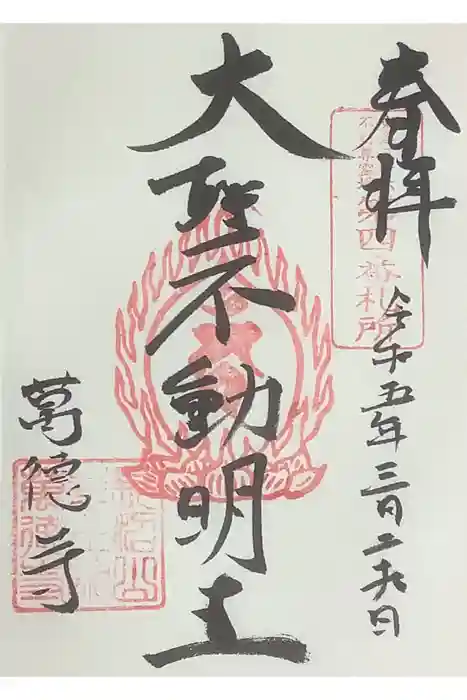 奉拝
第四番札所
令和五年三月二十六日
大聖不動明王
萬德寺